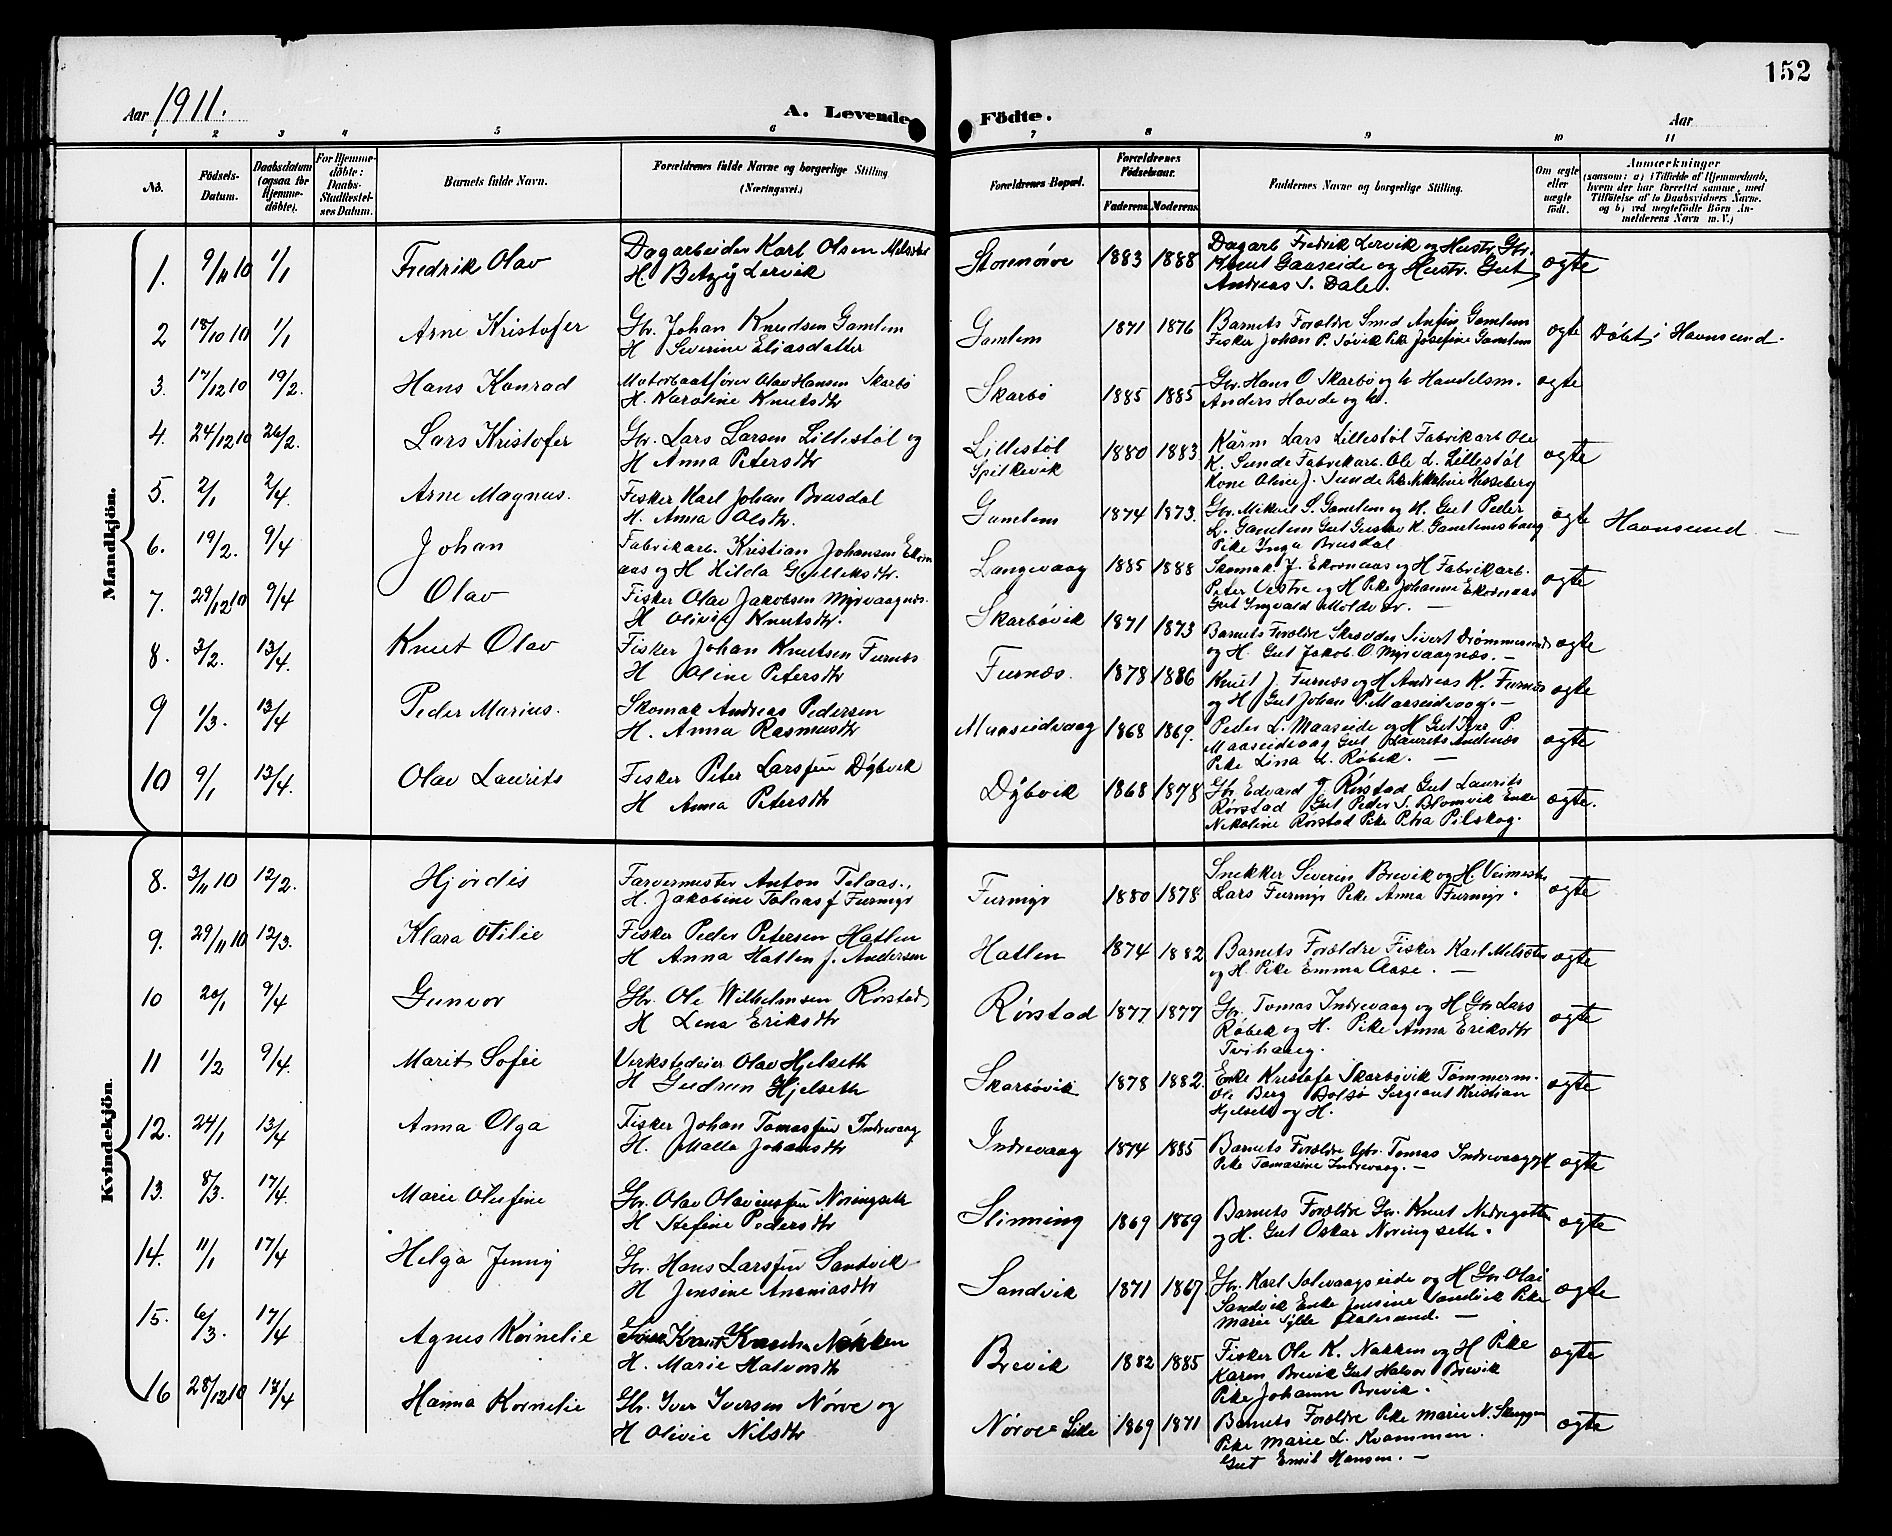 152
Aar 1911.
A. Levende
Födte.
Aar
1 2 3 4 5 6 7 8 9 10 11
No.
Födsels-Datum.
Daabsdatum (ogsaa for Hjemme-döbte).
For Hjemme-döbte: Daabs-Stadfæstel-ses Datum.
Barnets fulde Navn.
Forældrenes fulde Navne og borgerlige Stilling (Næringsvei.)
Forældrenes Bopæl.
Forældrenes Födselsaar.
Faderens Moderens
Faddernes Navne og borgerlige Stilling.
Om ægte eller uægte födt.
Anmærkninger
(saasom: a) i Tilfælde af Hjemmedaab,
hvem der har forrettet samme, med
Tilföielse af to Daabsvidners Navne.
og b) ved uægtefödte Börn An-
melderens Navn m. V.)
Mandkjön.
1. 9/11 10 1/1 Fredrik Olav
Dagarbeider Karl Olsen Melsæter
H Betzy Lervik
Storenørve 1883 1888
Dagarb Fredrik Lervik og Hustr. Gbr.
Knut Gaaseide og Hustr. Gut
Andreas S. Dale.
ægte
2 18/10 10 1/1 Arne Kristofer
Gbr. Johan Knudsen Gamlem
H Severine Eliasdatter
Gamlem 1871 1876
Barnets Forældre Smed Anfin Gamlem
Fisker Johan P. Søvik Pike Josefine Gamlem
ægte Døbt i Havnsund.
3. 17/12 10 19/2. Hans Konrad
Motorbaatfører Olav Hansen Skarbø
H. Karoline Knutsdtr
Skarbø 1885 1885
Gbr. Hans O Skarbø og h. Handelsm.
Anders Hovde og h.
ægte
4. 24/12 10 26/2. Lars Kristofer
Gbr. Lars Larsen Lillestøl og
H Anna Petersdtr
Lillestøl
Spilkevik
1880 1883
Kårm Lars Lillestøl Fabrikarb Ole
K. Sunde Fabrikarb. Ole L. Lillestøl
Kone Oline J. Sunde
ægte
5. 2/1 2/4. Arne Magnus.
Fisker Karl Johan Brusdal
H. Anna Olsdtr.
Gamlem 1874 1873.
Gbr. Mikael S. Gamlem og H. Gut Peder
L. Gamlem Gut Gustav K. Gamlemshaug
Pike Inga Brusdal
ægte Havnsund —
6. 19/2. 9/4 Johan
Fabrikarb. Kristian Johansen Ekorn
aas og H Hilda Gulleksdtr.
Langevaag 1885 1888
Skomak. J. Ekornaas og H Fabrikarb.
Peter Vestre og H Pike Johanne Ekornaas
Gut Ingvald Moldver. —
ægte
7. 29/12 10 9/4 Olav
Fisker Olav Jakobsen Myrvaagnæs.
H Olivie Knutsdtr.
Skarbøvik 1871 1873
Barnets Forældre Skrædder Sivert Drømmesund
og H. Gut Jakob. O Myrvaagnæs. —
ægte
8. 3/2. 13/4. Knut Olav
Fisker Johan Knutsen Furnæs
H Oline Petersdtr
Furnæs. 1878 1886
Knut J. Furnæs og H Andreas K. Furnæs
og H Gut Johan P. Maaseidevaag. —
ægte
9 1/3. 13/4 Peder Marius.
Skomak Andreas Pedersen
H. Anna Rasmusdtr
Maaseidvaag 1868 1869.
Peder L. Maaseide og H Gut Iver P
Maaseidevaag Gut Laurits Andenæs
Pike Lina L. Røbek. —
ægte
10 9/1 13/4. Olav Laurits
Fisker Peter Larssen Dybvik
H Anna Petersdtr
Dybvik 1868 1878
Gbr. Edvard J. Rørstad Gut Laurits
Rørstad Gut Peder S. Blomvik Enke
Nikoline Rørstad Pike Petra Pilskog.
ægte.
Kvindekjön.
8. 3/11 10 12/2. Hjørdis
Farvermester Anton Talaas.,
H. Jakobine Talaas f Furmyr
Furmyr 1880 1878
Snekker Severin Brevik og H. Veimester
Lars Furmyr Pike Anna Furmyr.
ægte
9. 29/11 10 12/3. Klara Otilie
Fisker Peder Petersen Hatlen
H Anna Hatlen f. Andersen
Hatlen 1874 1882
Barnets Forældre Fisker Karl Melsæter
og H. Pike Emma Aase. —
ægte
10 20/1 9/4 Gunvor
Gbr. Ole Wilhelmsen Rørstad
H Lena Eriksdtr
Rørstad 1877 1877
Gbr. Tomas Indrevaag og H Gbr Lars
Røbek og H. Pike Anna Eriksdtr
Tvihaug.
ægte
11 1/2 9/4. Marit Sofie
Verkstedeier Olav Hjelseth
H Gudrun Hjelseth
Skarbøvik 1878 1882.
Enke Kristofa Skarbøvik Tømmerm.
Ole Berg Bolsø Sergeant Kristian
Hjelseth og H.
ægte
12. 24/1 13/4 Anna Olga
Fisker Johan Tomassen Indrevaag
H. Malla Johansdtr
Indrevaag 1874 1885
Barnets Forældre Gbr. Tomas Indrevaag og H
Pike Tomasine Indrevaag. —
ægte
13. 8/3. 17/4. Marie Olufine
Gbr. Olav Olavinussen Nøringseth
H Stefine Pedersdtr
Slinning 1869 1869
Barnets Forældre Gbr. Knut Nedregotten
og H. Gut Oskar Nøringseth.
ægte
14. 11/1 17/4 Helga Jenny
Gbr. Hans Larssen Sandvik
H Jensine Ananiasdtr
Sandvik 1871 1867
Gbr. Karl Solevaagseide og H Gbr Olai
Sandvik Enke Jensine Sandvik Pike
Marie Sylte Aalesund. —
ægte
15. 6/3. 17/4 Agnes Kornelie
Knut Knutsen Nakken
H. Marie Halvorsdtr
Brevik 1882 1885
Fisker Ole K. Nakken og H Pike
Karen Brevik Gut Halvor Brevik
Pike Johanna Brevik.
ægte
16 28/12 10 17/4 Hanna Kornelie
Gbr. Iver Iversen Nørve og
H Olivie Nilsdtr
Nørve Lille 1869 1871
Barnets Forældre Pike Marie N. Skuggen
Pike Marie L. Kvammen.
Gut Emil Hansen. —
ægte